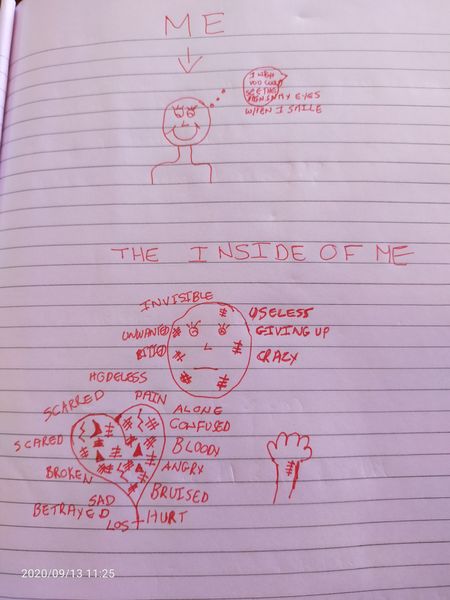 ME
I WISH
YOU COULD
SEE THE
PAIN IN MY EYES
WHEN I SMILE
THE INSIDE OF ME
INVISIBLE
USELESS
UNWANTED
GIVING UP
CRAZY
HOPELESS
PAIN
SCARRED
ALONE
CONFUSED
SCARED
BLOODY
ANGRY
BROKEN
BRUISED
SAD
BETRAYED
HURT
LOST
2020/09/13 11:25